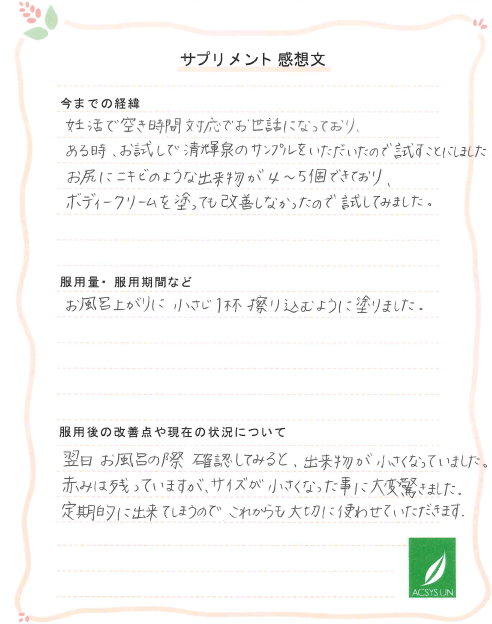 サプリメント 感想文
今までの経緯
妊活で空き時間対応でお世話になっており、
ある時、お試しで清輝泉のサンプルをいただいたので試すことにしました
お尻にニキビのような出来物が4〜5個できており、
ボディークリームを塗っても改善しなかったので試してみました。
服用量・服用期間など
お風呂上がりに小さじ1杯擦り込むように塗りました。
服用後の改善点や現在の状況について
翌日お風呂の際確認してみると、出来物が小さくなっていました。
赤みは残っていますが、サイズが小さくなった事に大変驚きました。
定期的に出来てしまうのでこれからも大切に使わせていただきます.
ACSYSUN